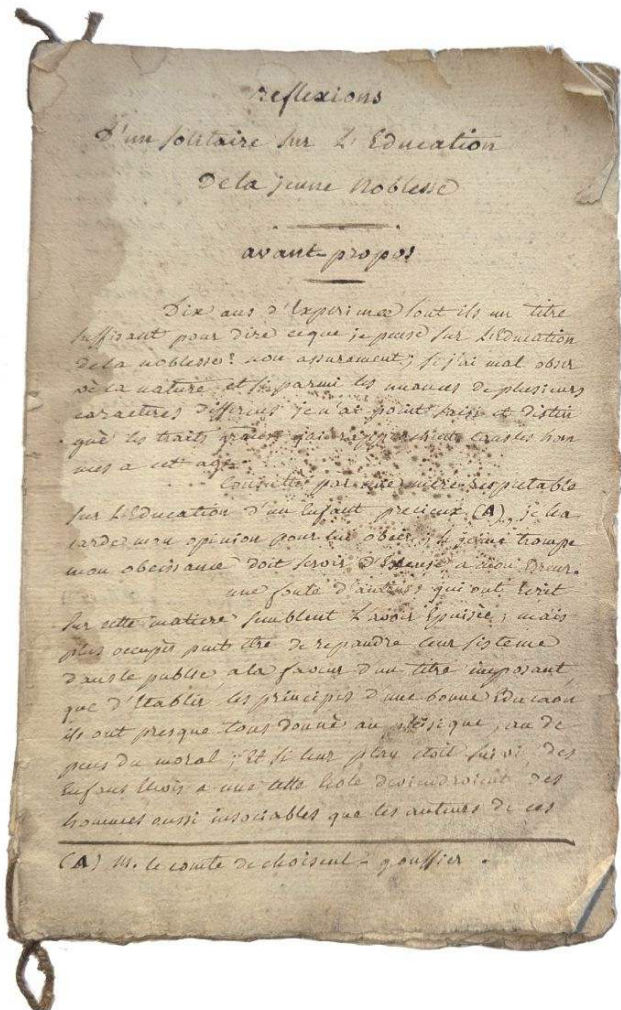 reflexions
D'un solitaire sur L'Education
De la jeune Noblesse
avant-propos
Dix ans d'Experience sont ils un titre
suffisant pour dire ceque je pense sur L'Education
dela noblesse? non assurement; si j'ai mal obser
vé la nature, et si parmi les nuances de plusieurs
caracteres differens je n'ai point saisi et distin
gué les traits qui tous les hom
mes a cet age.
Consulté par une mere respectable
sur L'Education d'un Enfant precieux (A), je ha
zarde mon opinion pour lui obéir; si je me trompe
mon obeissance doit servir d'Excuse a mon Erreur.
une foule d'auteurs qui ont Ecrit
sur cette matiere semblent L'avoir Epuisée; mais
plus occupés peut etre de repandre leur sisteme
dans le public a la faveur d'un titre imposant,
que d'Etablir les principes d'une bonne Educaon
ils ont presque tous donné au phisique, au de
pens du moral; Et si leur plan etoit suivi des
Enfans Elevés a une telle Ecole deviendroient des
hommes aussi insociables que les auteurs de ces
(A) M. le comte de choiseul-gouffier.